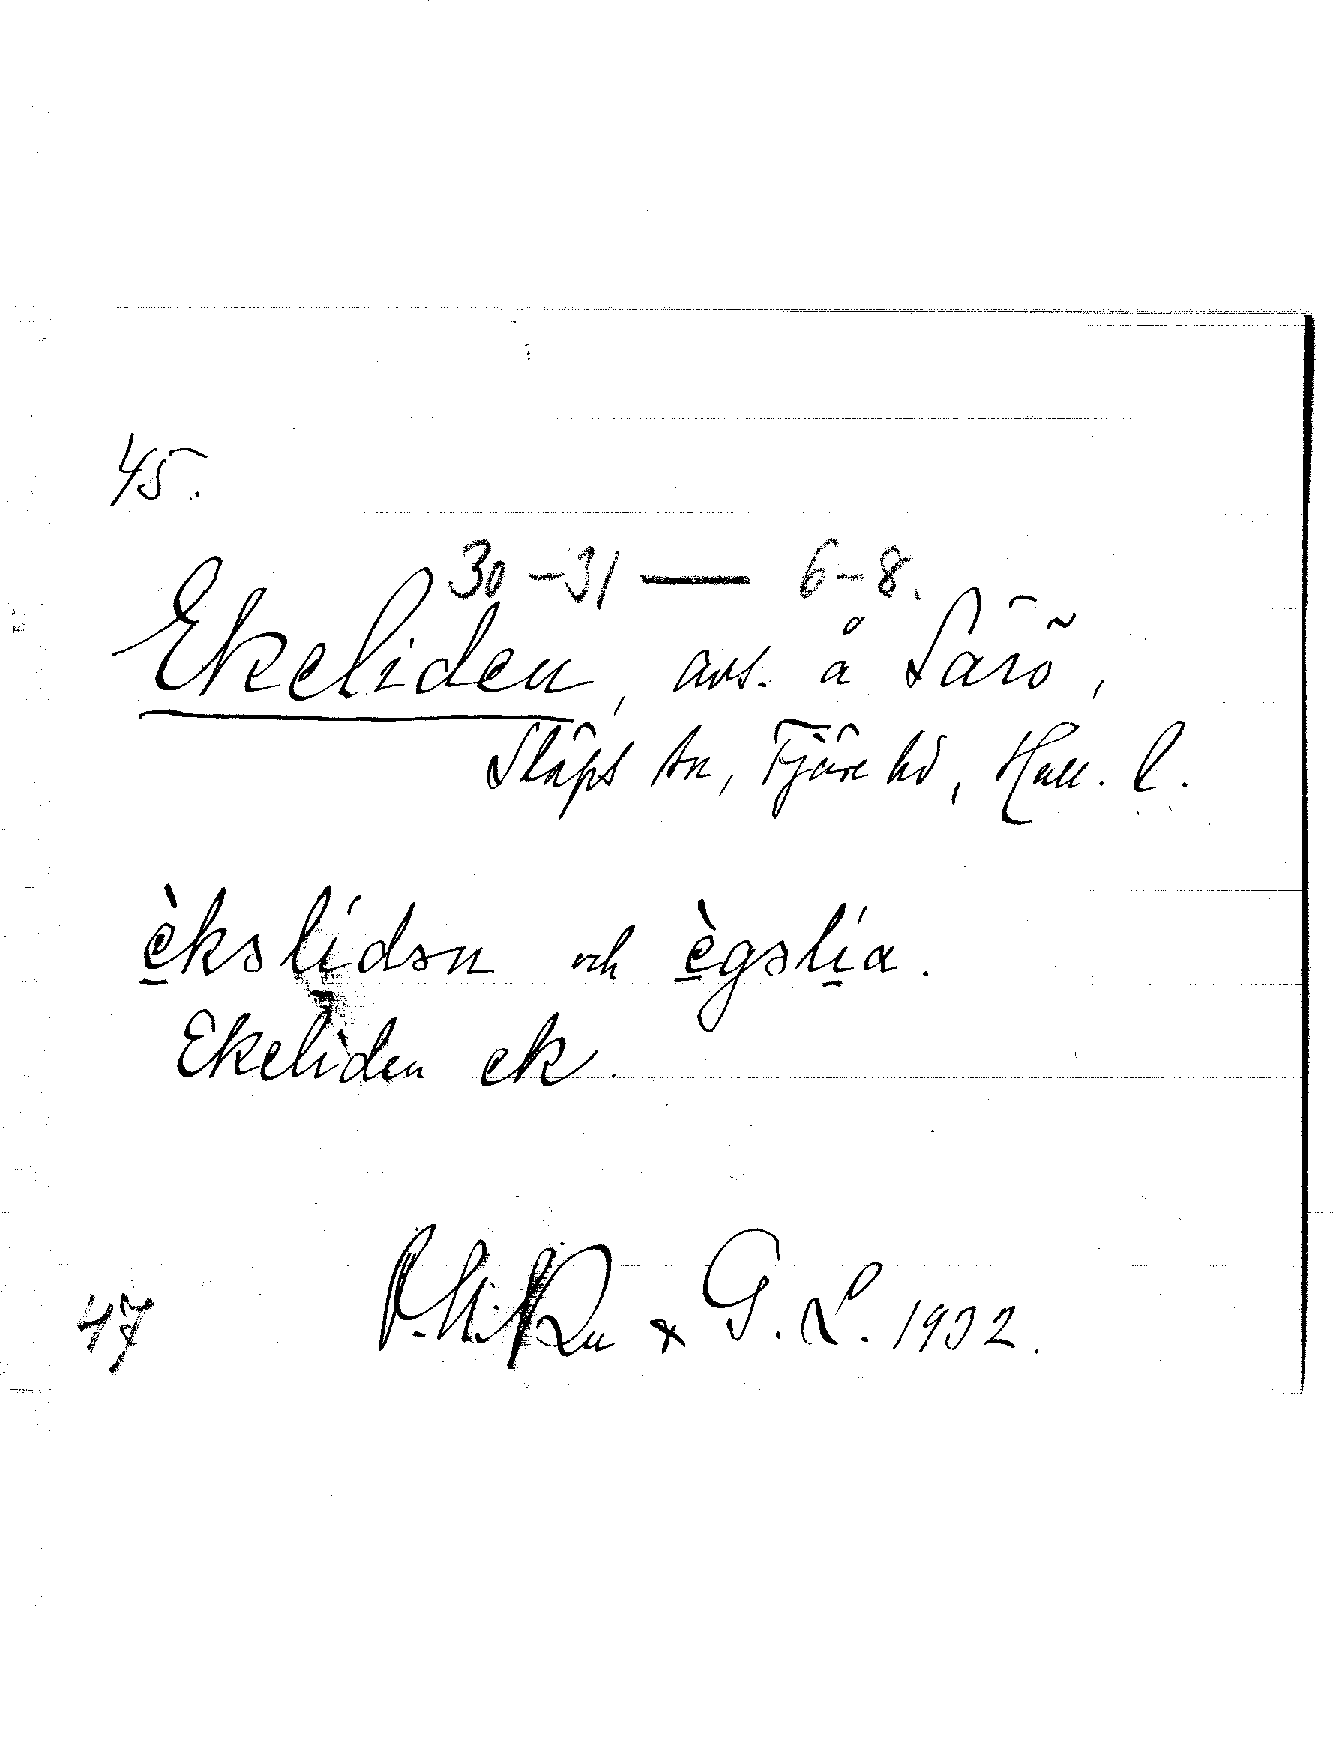 45.
30-31 — 6-8.
Ekeliden, avs. å Särö,
Släps sn, Fjäre hd, Hall. l.
èkəlídən och ègəlía.
Ekeliden ek.
47 G. L. 1932.